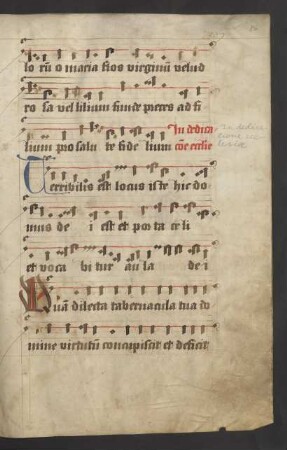 lo rū o maria flos virginū velud
ro sa vel lilium funde preces ad fi
lium pro salu te fide lium In dedica
cōe ecclie
Terribilis est locus iste hic do
mus de i est et porta celi
et voca bi tur aula de i
Quā dilecta tabernacula tua do
mine virtutū concupiscit et deficit